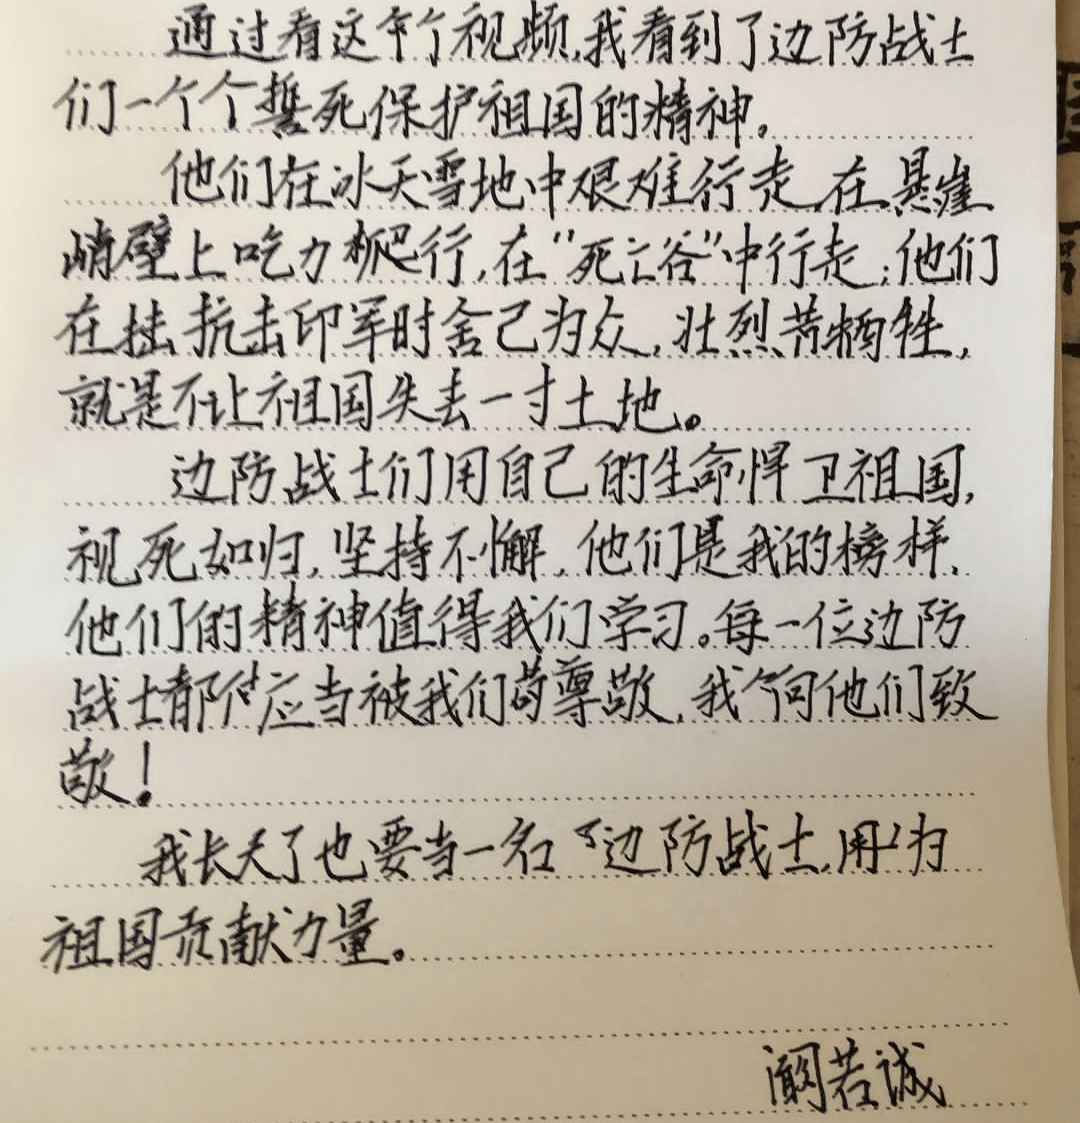 通过看这个视频,我看到了边防战士
们一个个誓死保护祖国的精神。
他们在冰天雪地中艰难行走,在悬崖
峭壁上吃力爬行,在"死亡谷"中行走;他们
在抗击印军时舍己为众,壮烈牺牲,
就是不让祖国失去一寸土地。
边防战士们用自己的生命悍卫祖国,
视死如归,坚持不懈,他们是我的榜样,
他们的精神值得我们学习。每一位边防
战士都应当被我们尊敬,我向他们致
敬!
我长大了也要当一名边防战士,为
祖国贡献力量。
阚若诚